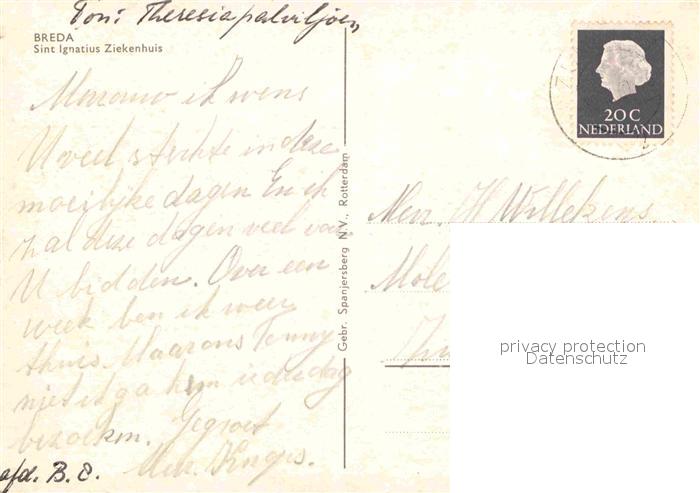 Ton: Theresiapalviljoen
BREDA
Sint Ignatius Ziekenhuis
ik wens
U veel sterkte in deze
moeilijke dagen En ik
zal deze dagen veel voor
U bidden. Over een
week ben ik weer
thuis. Maar ons Tonny
niet ik ga hem iedere dag
bezoeken. Gegroet
Mev.
afd. B. 8.
Gebr. Spanjersberg N.V., Rotterdam
20 C
NEDERLAND
Mevr. H Willekens
Mole
privacy protection
Datenschutz